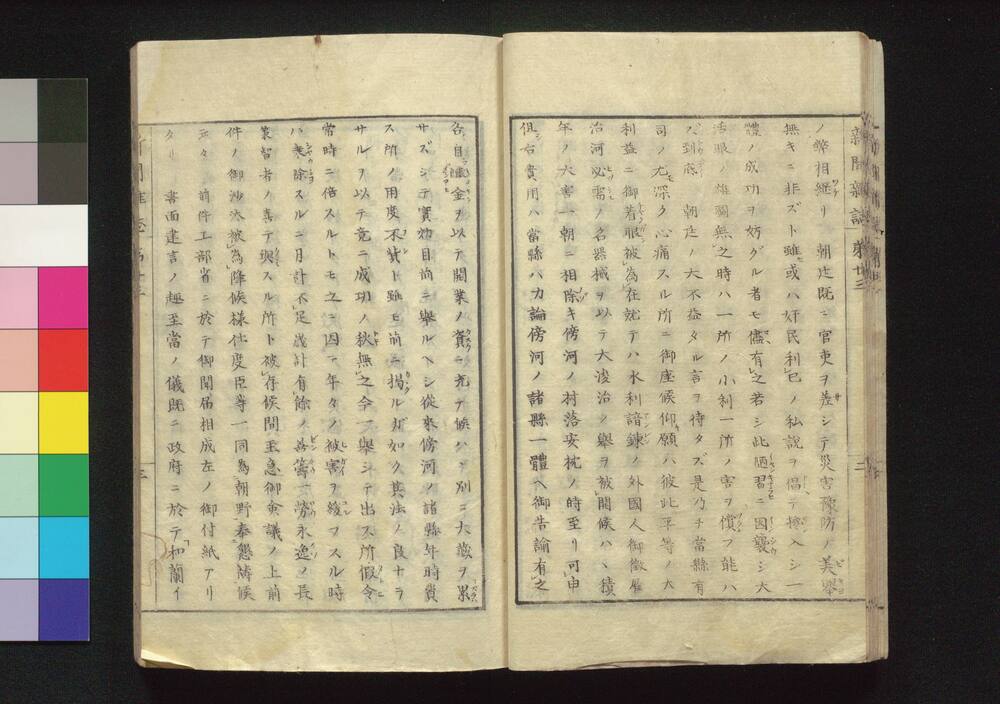 新聞雜誌 第廿三
二
ノ弊相継リ 朝廷既ニ官吏ヲ差シテ災害豫防ノ美擧
無キニ非ズト雖或ハ奸民利已ノ私說ヲ倡テ 入シ一
體ノ成功ヲ妨グル者モ儘有之若シ此陋習ニ因襲シ大
活眼ノ雄 無之時ハ一所ノ小利一所ノ害ヲ償フ能ハ
ズ到底 朝廷ノ大不益タル言ヲ待タズ是乃チ當縣有
司ノ尤深ク心痛スル所ニ御座候仰願ハ彼此平等ノ大
利益ニ御着眼被為在就テハ水利諳鍊ノ外國人御徵雇
治河必需ノ名器械ヲ以テ大浚治ノ擧ヲ被開候ハヽ積
年ノ大害一朝ニ相除キ傍河ノ村落安枕ノ時至リ可申
但シ右費用ハ當縣ハ勿論傍河ノ諸縣一體ヘ御告諭有之
各自 金ヲ以テ開業ノ資ニ充テ候ハヽ別ニ大藏ヲ累
サズシテ實効目前ニ擧ルヘシ從來傍河ノ諸縣年時費
ス所ノ用度不貲ト雖モ前ニ揭ルガ如ク其法ノ良ナラ
サルヲ以テ竟ニ成功ノ秋無之今一擧シテ出ス所假令
常時ニ倍スルトモ之ニ因テ年々ノ被害ヲ緩フスル時
ハ乗除スルニ日計不足歲計有餘ノ 籌一勞永逸ノ長
策智者ノ喜テ與スル所ト被存候間至急御僉議ノ上前
件ノ御沙汰被為降候様仕度臣等一同為朝野奉懇禱候
云々 前件工部省ニ於テ御聞届相成左ノ御付紙アリ
タリ 書面建言ノ趣至當ノ儀既ニ政府ニ於テ和蘭イ
三